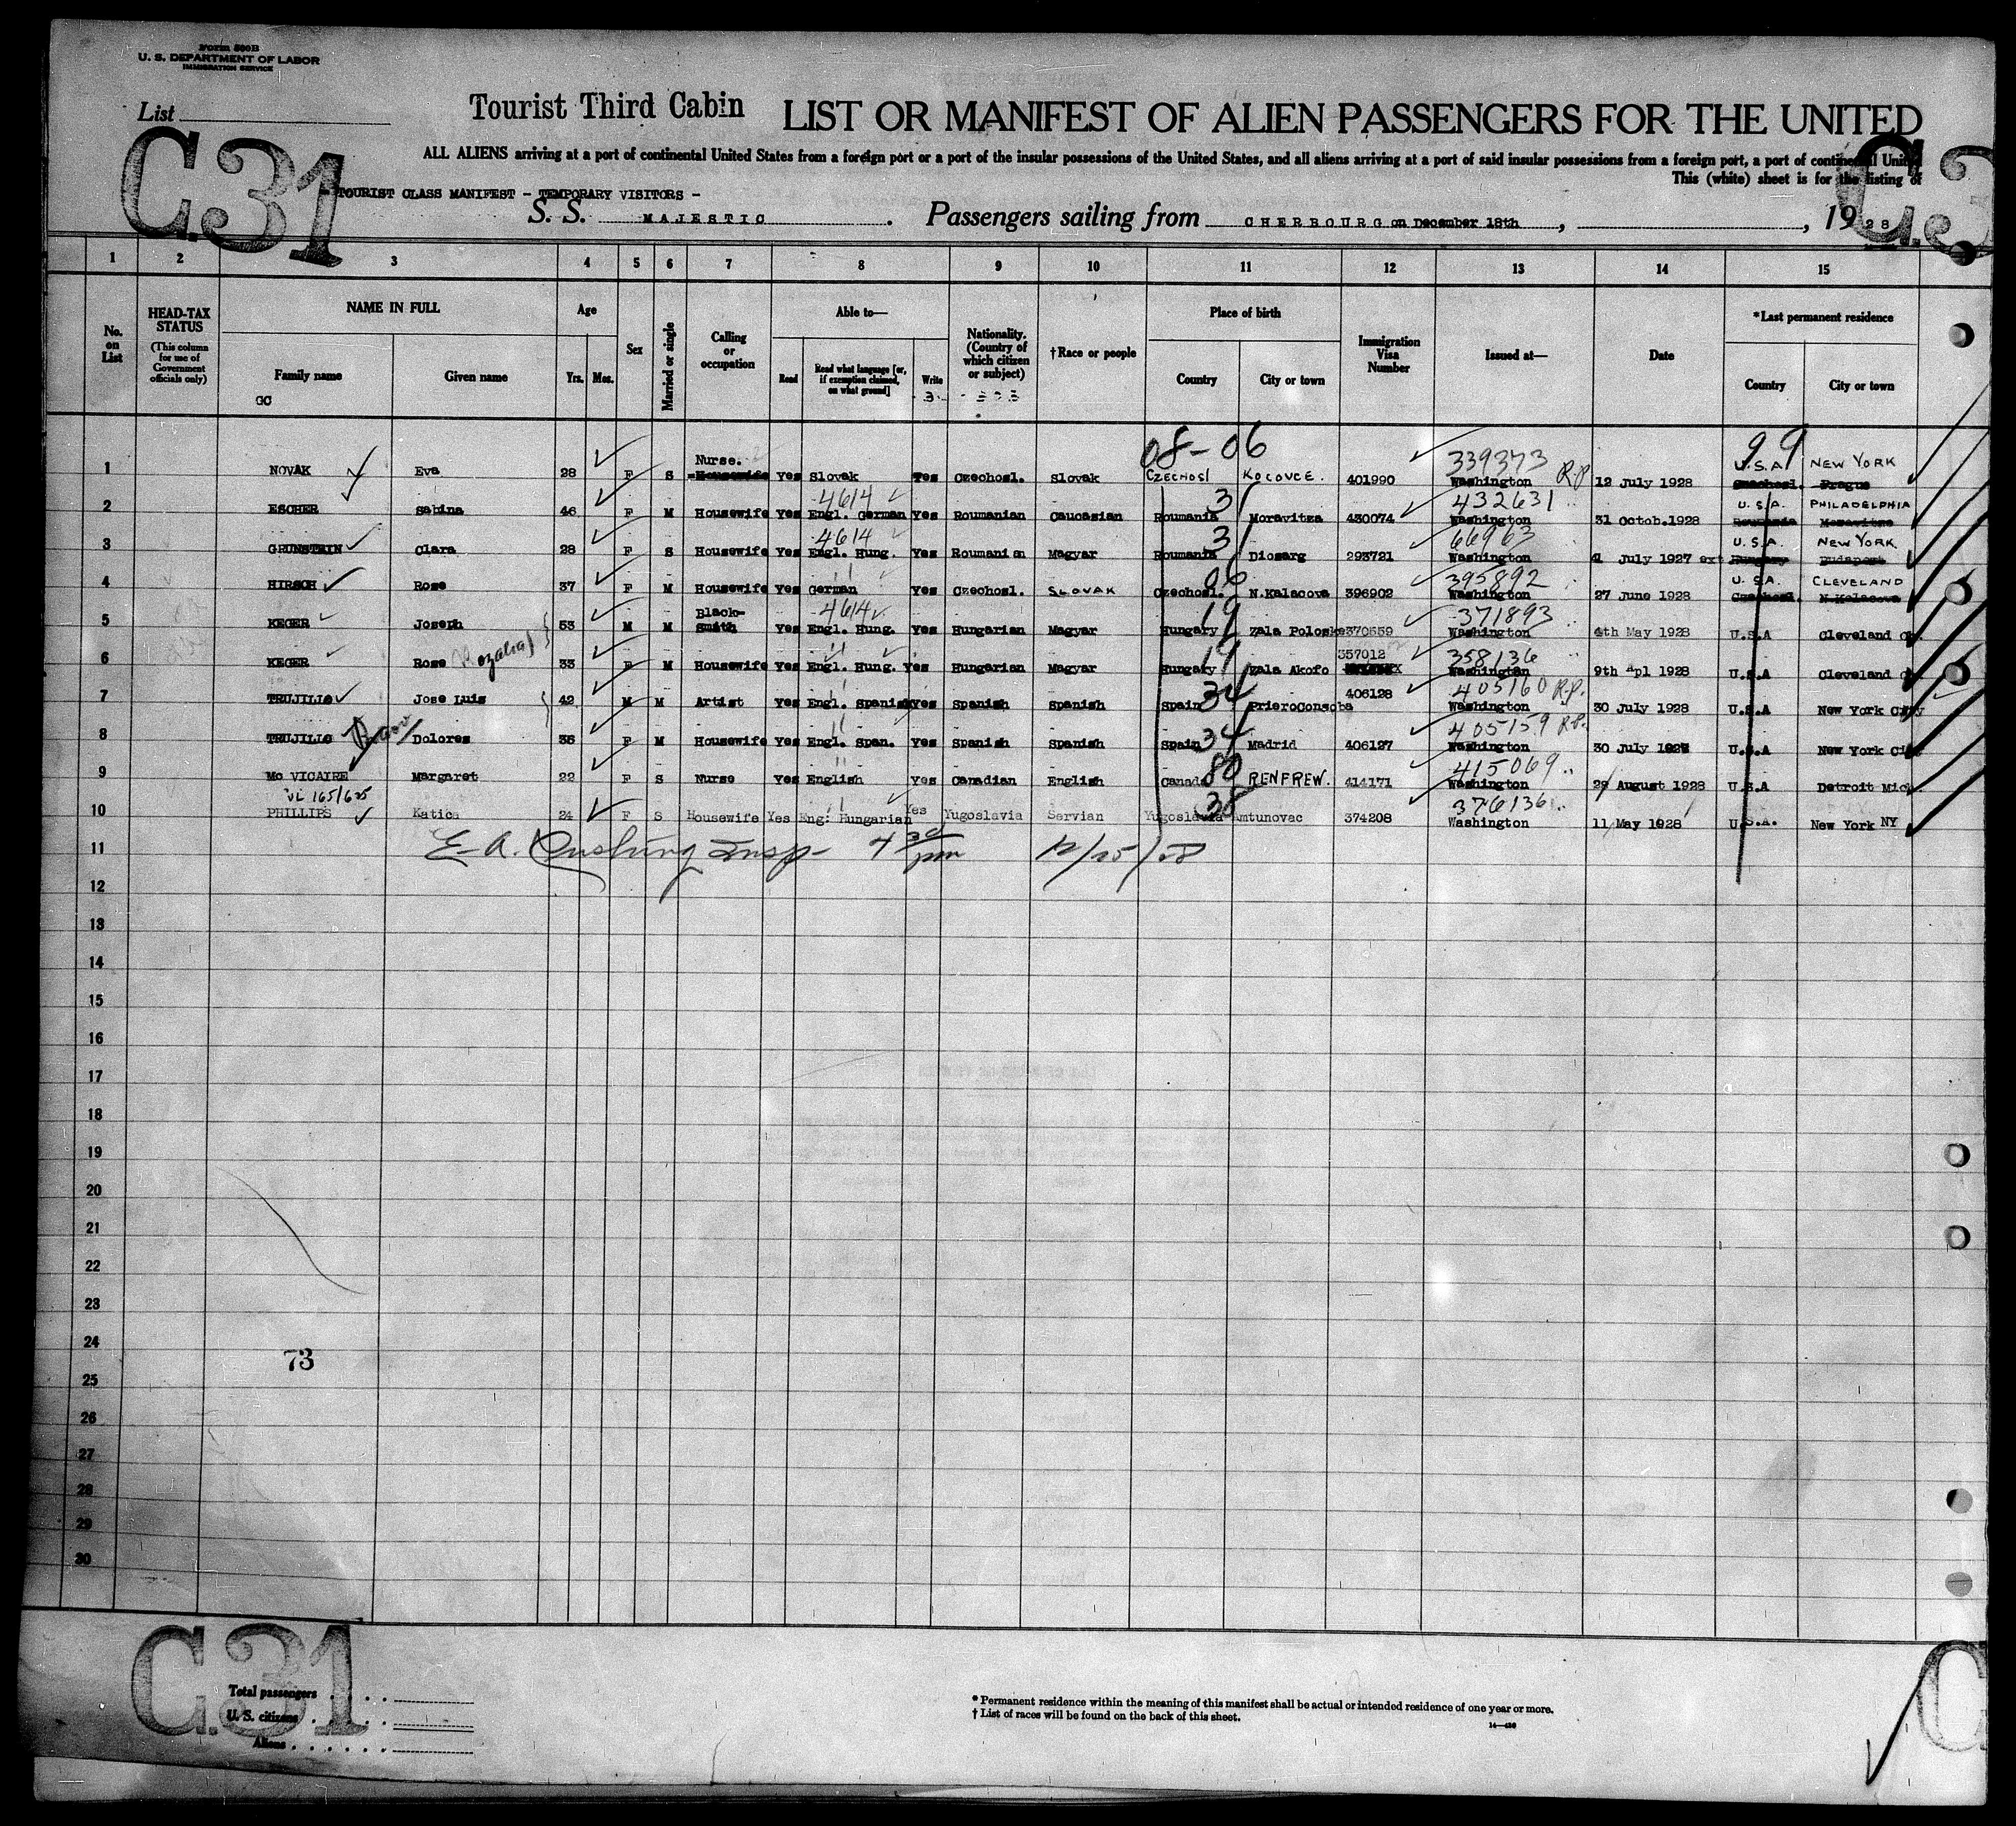 Form 500B
U. S. DEPARTMENT OF LABOR
IMMIGRATION SERVICE
List
Tourist Third Cabin LIST OR MANIFEST OF ALIEN PASSENGERS FOR THE UNITED
C.31
ALL ALIENS arriving at a port of continental United States from a foreign port or a port of the insular possessions of the United States, and all aliens arriving at a port of said insular possessions from a foreign port, a port of continental United
This (white) sheet is for the listing of
- TOURIST CLASS MANIFEST - TEMPORARY VISITORS -
S. S. MAJESTIC. Passengers sailing from CHERBOURG on December 18th, , 1928
1 2 3 4 5 6 7 8 9 10 11 12 13 14 15
No. on List
HEAD-TAX STATUS (This column for use of Government officials only)
NAME IN FULL Family name Given name
GC
Age Yrs. Mos.
Sex
Married or single
Calling or occupation
Able to— Read Read what language [or, if exemption claimed, on what ground] Write
Nationality. (Country of which citizen or subject)
†Race or people
Place of birth Country City or town
Immigration Visa Number
Issued at—
Date
*Last permanent residence Country City or town
08-06 99
1 NOVAK Eva 28 F S Nurse. Housewife Yes Slovak Yes Czechosl. Slovak CZECHOSl KOCOVCE. 401990 339373 R.P. Washington 12 July 1928 U.S.A NEW YORK Czechosl. Prague
2 ESCHER Sabina 46 F M Housewife Yes 4614 Engl. German Yes Roumanian Caucasian Roumania 31 Moravitza 430074 432631 Washington 31 Octob.1928 U.S.A. PHILADELPHIA Roumania Moravitza
3 GRUNSTEIN Clara 28 F S Housewife Yes 4614 Engl. Hung. Yes Roumanian Magyar Roumania 31 Diosarg 293721 66963 Washington 1 July 1927 ext U.S.A. NEW YORK Hungary Budapest
4 HIRSCH Rose 37 F M Housewife Yes German Yes Czechosl. SLOVAK Czechosl. 06 N.Kalacova 396902 395892 Washington 27 June 1928 U.S.A. CLEVELAND Czechosl. N.Kalacova
5 KEGER Joseph 53 M M Black-smith Yes 4614 Engl. Hung. Yes Hungarian Magyar Hungary 19 Zala Poloske 370559 371893 Washington 4th May 1928 U.S.A Cleveland
6 KEGER Rose Rozalia 33 F M Housewife Yes Engl. Hung. Yes Hungarian Magyar Hungary 19 Zala Akofo 357012 358136 Washington 9th Apl 1928 U.S.A Cleveland
7 TRUJILLO Jose Luis 42 M M Artist Yes Engl. Spanish Yes Spanish Spanish Spain 34 PrieroConsoba 406128 405160 R.P. Washington 30 July 1928 U.S.A New York City
8 TRUJILLO Dolores 36 F M Housewife Yes Engl. Span. Yes Spanish Spanish Spain 34 Madrid 406127 405159 R.P. Washington 30 July 1928 U.S.A New York City
9 Mc VICAIRE Margaret 22 F S Nurse Yes English Yes Canadian English Canada 80 RENFREW. 414171 415069 Washington 29 August 1928 U.S.A Detroit Mich
VL 165/625
10 PHILLIPS Katica 24 F S Housewife Yes Eng: Hungarian Yes Yugoslavia Servian Yugoslavia 38 Amtunovac 374208 376136 Washington 11 May 1928 U.S.A. New York NY
11 E. A. Cushing Insp- 4 30 pm 12/25/28
12
13
14
15
16
17
18
19
20
21
22
23
24
73
25
26
27
28
29
30
C.31
Total passengers
U. S. citizens
Aliens
* Permanent residence within the meaning of this manifest shall be actual or intended residence of one year or more.
† List of races will be found on the back of this sheet.
14—430